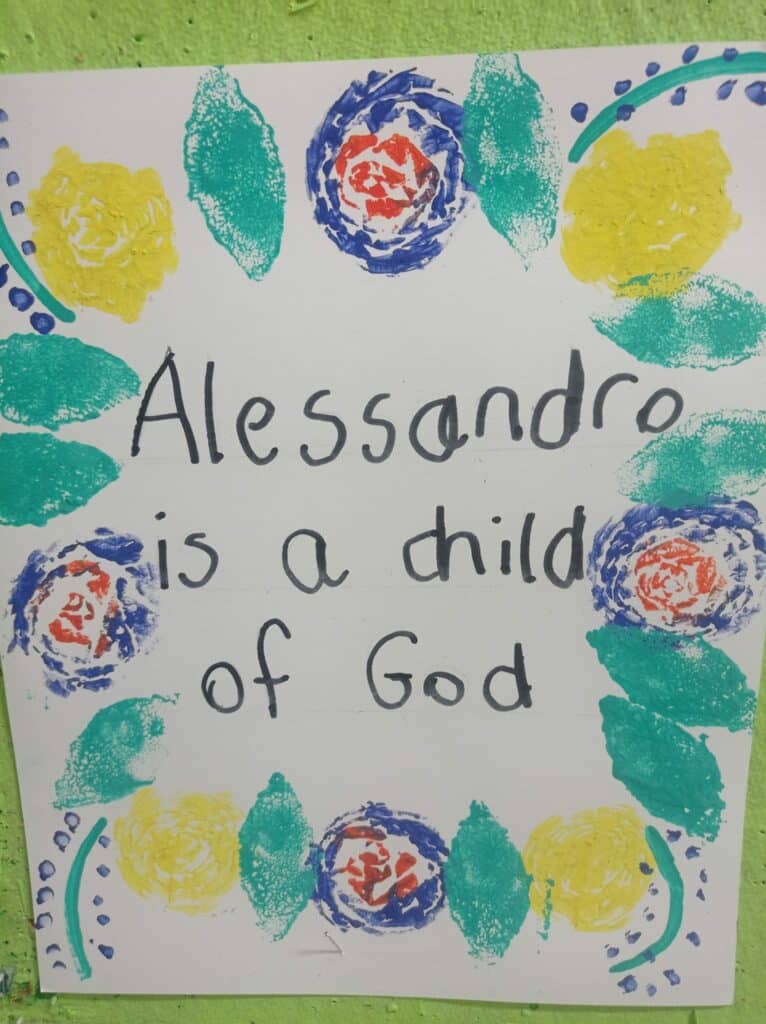 Alessandro
is a child
of God